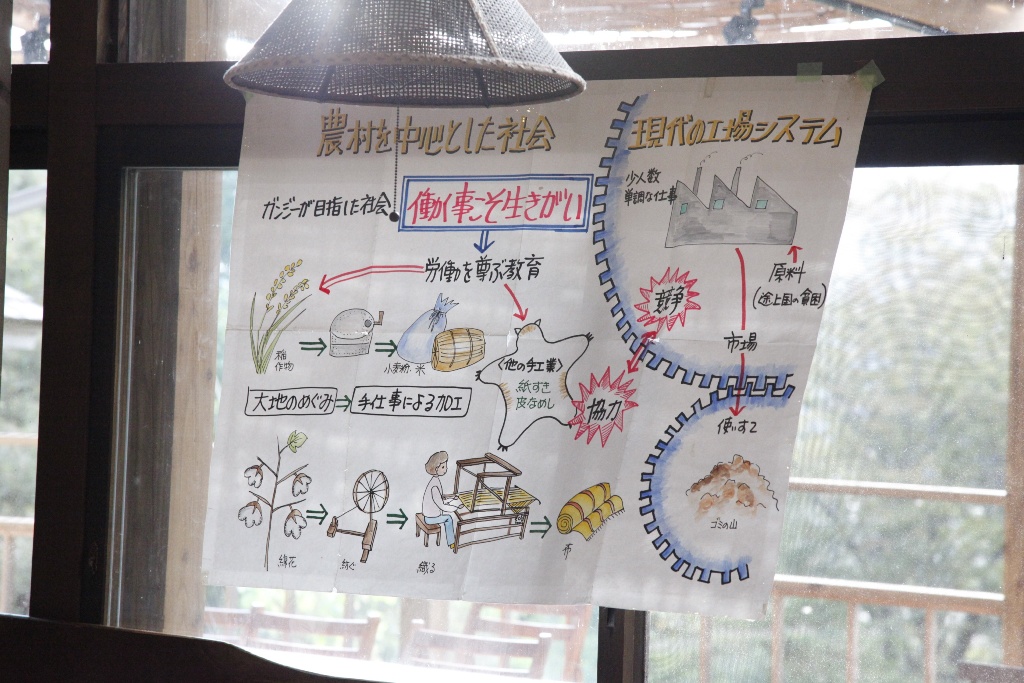 農村を中心とした社会
ガンジーが目指した社会
働く事こそ生きがい
労働を尊ぶ教育
稲
作物
小麦粉・米
〈他の手工業〉
紙すき
皮なめし
大地のめぐみ
手仕事による加工
綿花
紡ぐ
織る
布
現代の工場システム
少人数
単調な仕事
原料
(途上国の貧困)
競争
協力
市場
使いすて
ゴミの山